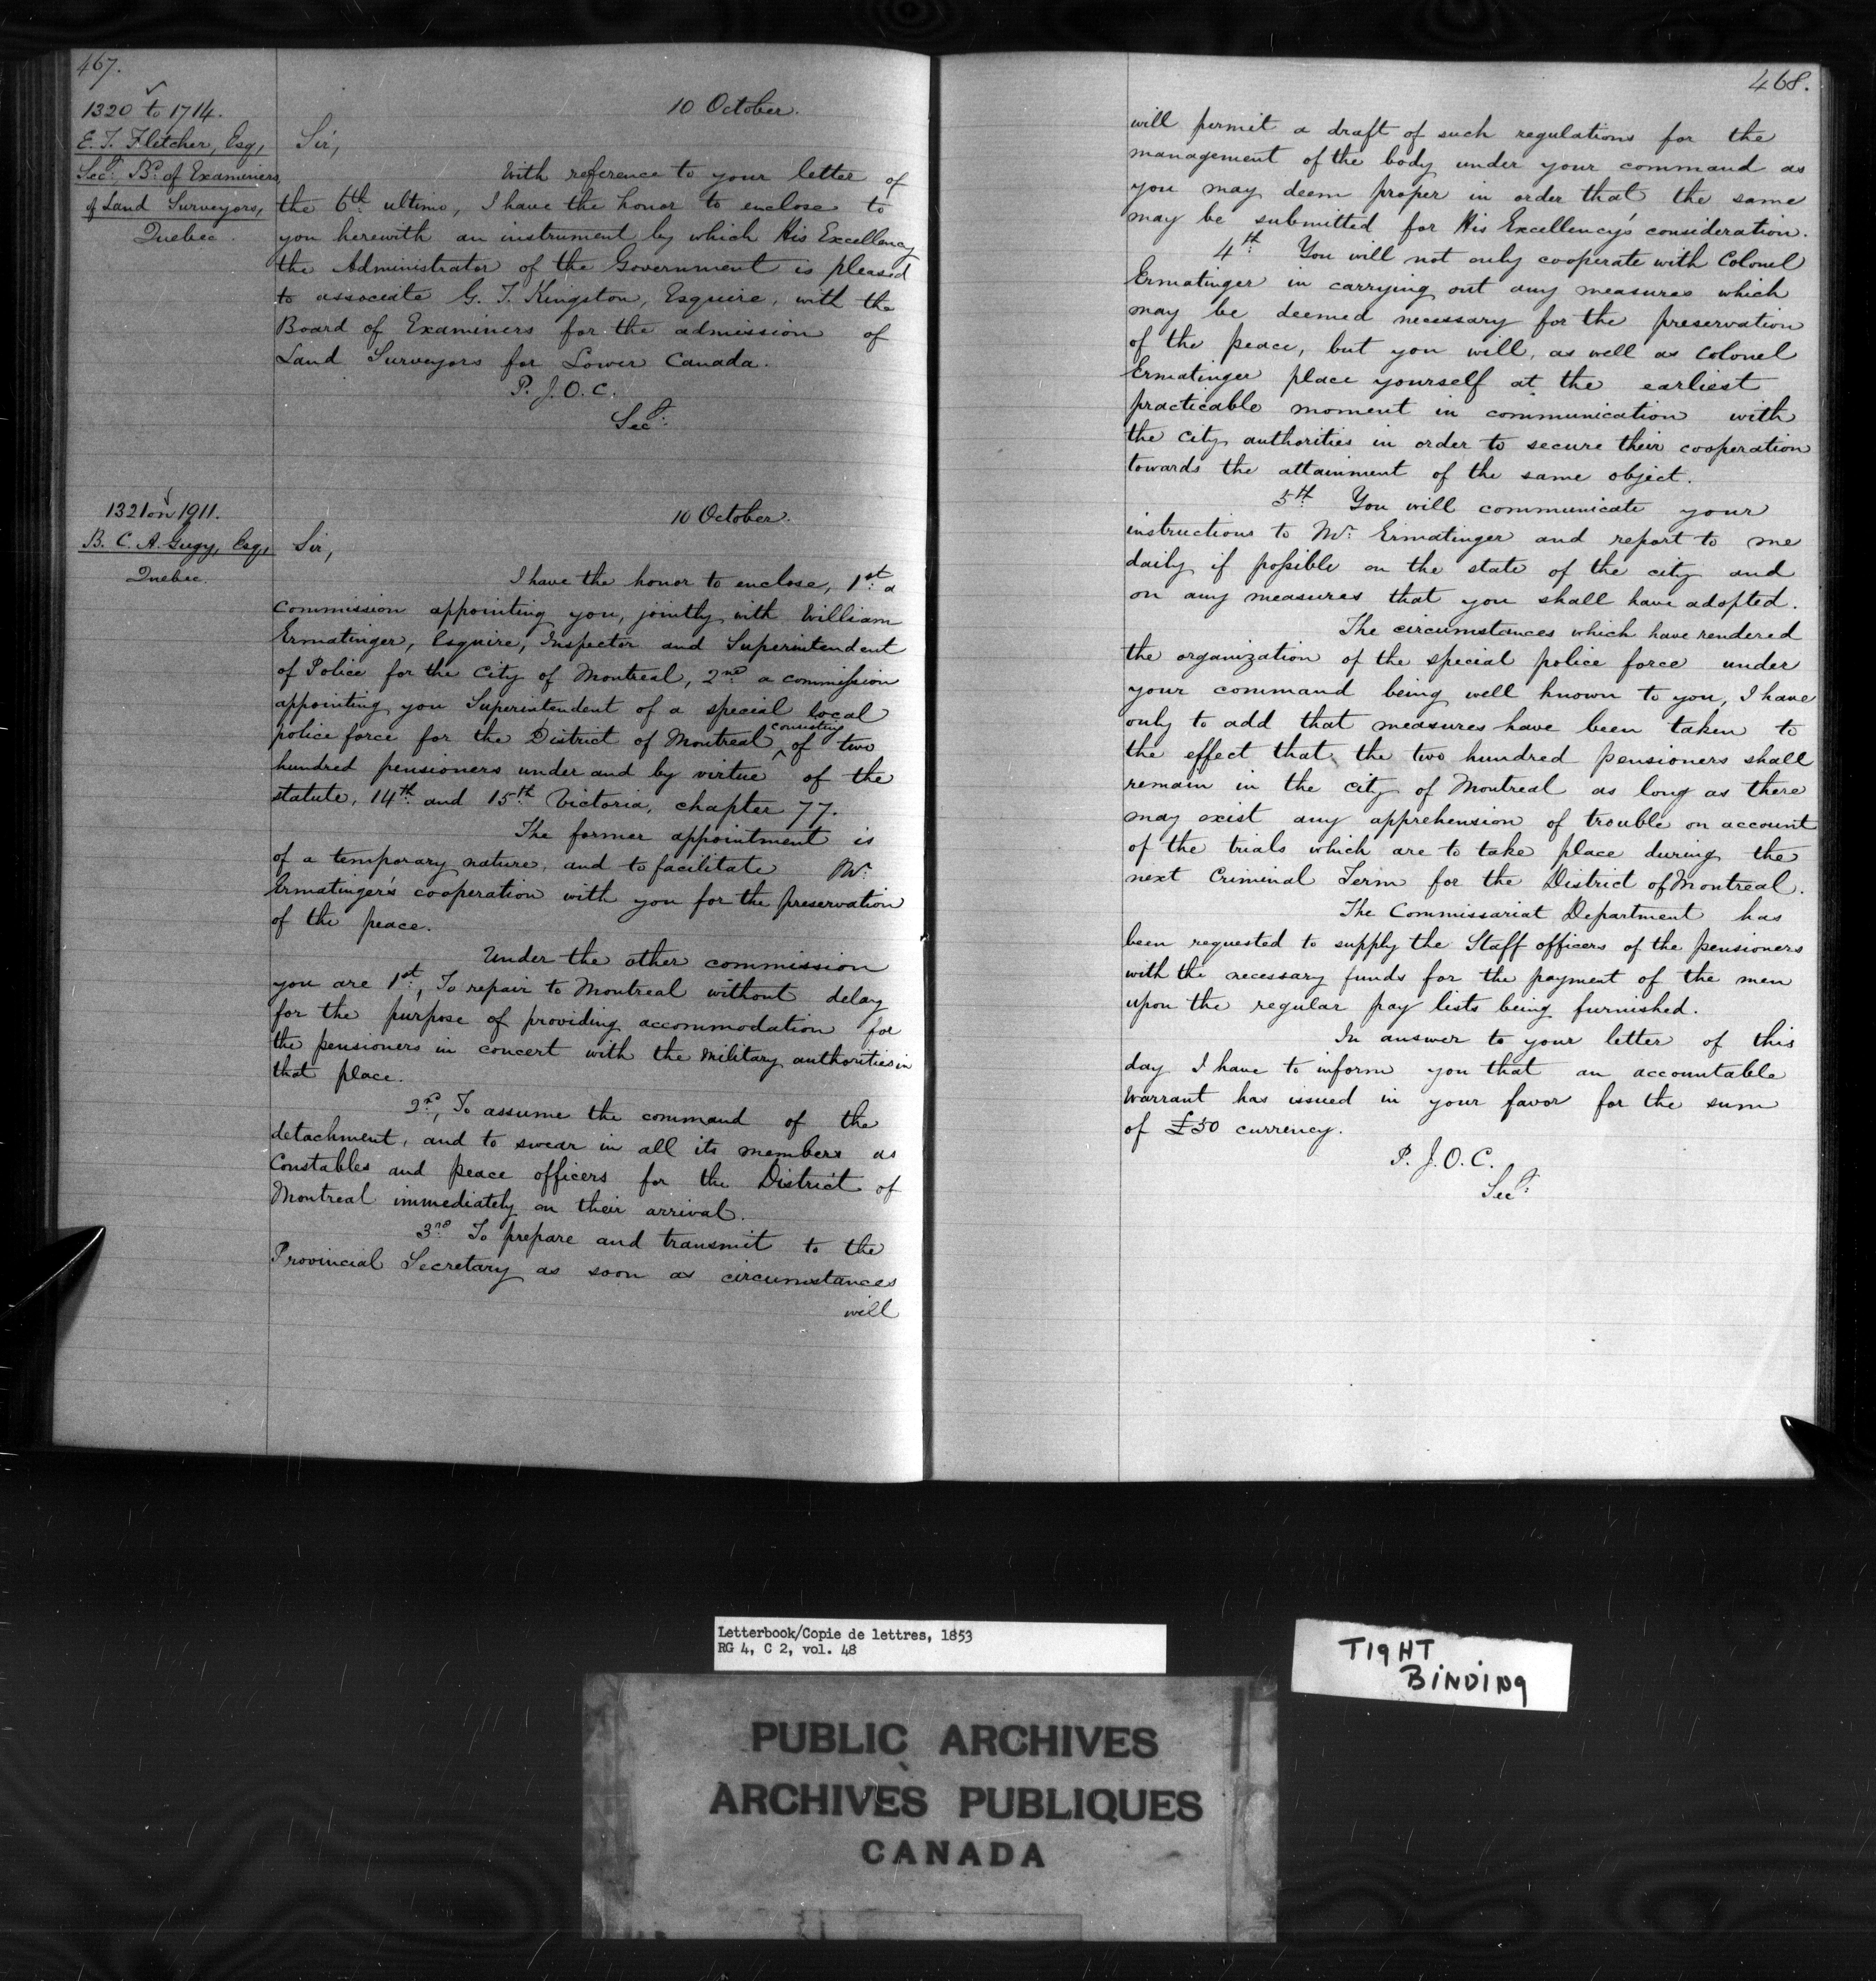 467.
1320 to 1714.
E. T. Fletcher, Esq,
Secy. Bd. of Examiners
of Land Surveyors,
Quebec.
10 October.
Sir,
With reference to your letter of
the 6th ultimo, I have the honor to enclose to
you herewith an instrument by which His Excellency
the Administrator of the Government is pleased
to associate G. T. Kingston, Esquire, with the
Board of Examiners for the admission of
Land Surveyors for Lower Canada.
P. J. O. C.
Secy.
1321 on 1911.
B. C. A. Gugy, Esq,
Quebec.
10 October.
Sir,
I have the honor to enclose, 1st. a
commission appointing you, jointly with William
Ermatinger, Esquire, Inspector and Superintendent
of Police for the City of Montreal, 2nd a commission
appointing you Superintendent of a special local
police force for the District of Montreal consisting of two
hundred pensioners under and by virtue of the
statute, 14th and 15th Victoria, chapter 77.
The former appointment is
of a temporary nature, and to facilitate Mr.
Ermatinger's cooperation with you for the preservation
of the peace.
Under the other commission
you are 1st, To repair to Montreal without delay
for the purpose of providing accommodation for
the pensioners in concert with the Military authorities in
that place.
2nd, To assume the command of the
detachment, and to swear in all its members as
Constables and peace officers for the District of
Montreal immediately on their arrival.
3rd To prepare and transmit to the
Provincial Secretary as soon as circumstances
will
468.
will permit a draft of such regulations for the
management of the body under your command as
you may deem proper in order that the same
may be submitted for His Excellency's consideration.
4th. You will not only cooperate with Colonel
Ermatinger in carrying out any measures which
may be deemed necessary for the preservation
of the peace, but you will, as well as Colonel
Ermatinger place yourself at the earliest
practicable moment in communication with
the city authorities in order to secure their cooperation
towards the attainment of the same object.
5th You will communicate your
instructions to Mr. Ermatinger and report to me
daily if possible on the state of the city and
on any measures that you shall have adopted.
The circumstances which have rendered
the organization of the special police force under
your command being well known to you, I have
only to add that measures have been taken to
the effect that the two hundred pensioners shall
remain in the city of Montreal as long as there
may exist any apprehension of trouble on account
of the trials which are to take place during the
next Criminal Term for the District of Montreal.
The Commissariat Department has
been requested to supply the Staff officers of the pensioners
with the necessary funds for the payment of the men
upon the regular pay lists being furnished.
In answer to your letter of this
day I have to inform you that an accountable
Warrant has issued in your favor for the sum
of £50 currency.
P. J. O. C.
Secy.
Letterbook/Copie de lettres, 1853
RG 4, C 2, vol. 48
TIGHT
BINDING
PUBLIC ARCHIVES
ARCHIVES PUBLIQUES
CANADA